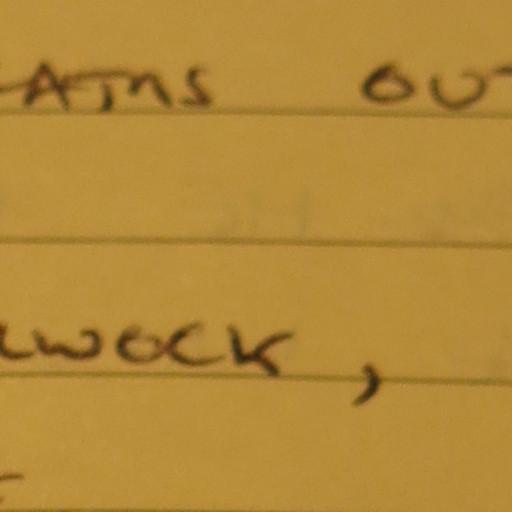 ATHS OUT
WOCK,